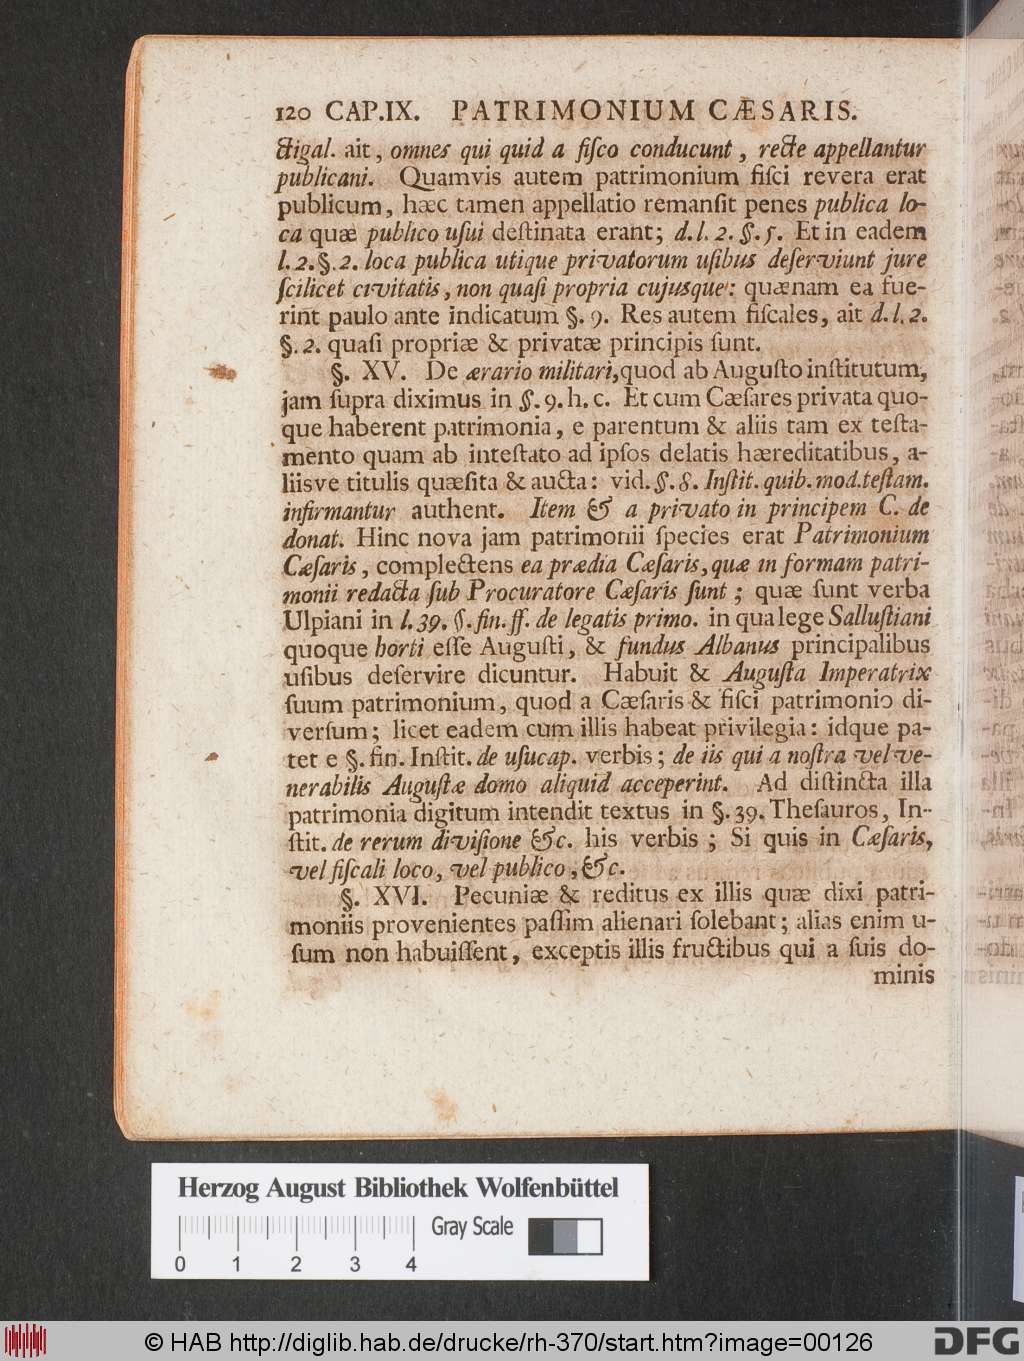 120 CAP.IX. PATRIMONIUM CÆSARIS.
ctigal. ait, omnes qui quid a fiſco conducunt, recte appellantur
publicani. Quamvis autem patrimonium fiſci revera erat
publicum, hæc tamen appellatio remanſit penes publica lo-
ca quæ publico uſui deſtinata erant; d. l. 2. §. 5. Et in eadem
l. 2. §. 2. loca publica utique privatorum uſibus deſerviunt jure
ſcilicet civitatis, non quaſi propria cujusque: quænam ea fue-
rint paulo ante indicatum §. 9. Res autem fiſcales, ait d. l. 2.
§. 2. quaſi propriæ & privatæ principis ſunt.
§. XV. De ærario militari, quod ab Auguſto inſtitutum,
jam ſupra diximus in §. 9. h. c. Et cum Cæſares privata quo-
que haberent patrimonia, e parentum & aliis tam ex teſta-
mento quam ab inteſtato ad ipſos delatis hæreditatibus, a-
liisve titulis quæſita & aucta: vid. §. 8. Inſtit. quib. mod. teſtam.
infirmantur authent. Item & a privato in principem C. de
donat. Hinc nova jam patrimonii ſpecies erat Patrimonium
Cæſaris, complectens ea prædia Cæſaris, quæ in formam patri-
monii redacta ſub Procuratore Cæſaris ſunt; quæ ſunt verba
Ulpiani in l. 39. §. fin. ff. de legatis primo. in qua lege Salluſtiani
quoque horti eſſe Auguſti, & fundus Albanus principalibus
uſibus deſervire dicuntur. Habuit & Auguſta Imperatrix
ſuum patrimonium, quod a Cæſaris & fiſci patrimonio di-
verſum; licet eadem cum illis habeat privilegia: idque pa-
tet e §. fin. Inſtit. de uſucap. verbis; de iis qui a noſtra vel ve-
nerabilis Auguſtæ domo aliquid acceperint. Ad diſtincta illa
patrimonia digitum intendit textus in §. 39. Theſauros, In-
ſtit. de rerum diviſione &c. his verbis; Si quis in Cæſaris,
vel fiſcali loco, vel publico, &c.
§. XVI. Pecuniæ & reditus ex illis quæ dixi patri-
moniis provenientes paſſim alienari ſolebant; alias enim u-
ſum non habuiſſent, exceptis illis fructibus qui a ſuis do-
minis
Herzog August Bibliothek Wolfenbüttel
Gray Scale
0 1 2 3 4
© HAB http://diglib.hab.de/drucke/rh-370/start.htm?image=00126
DFG